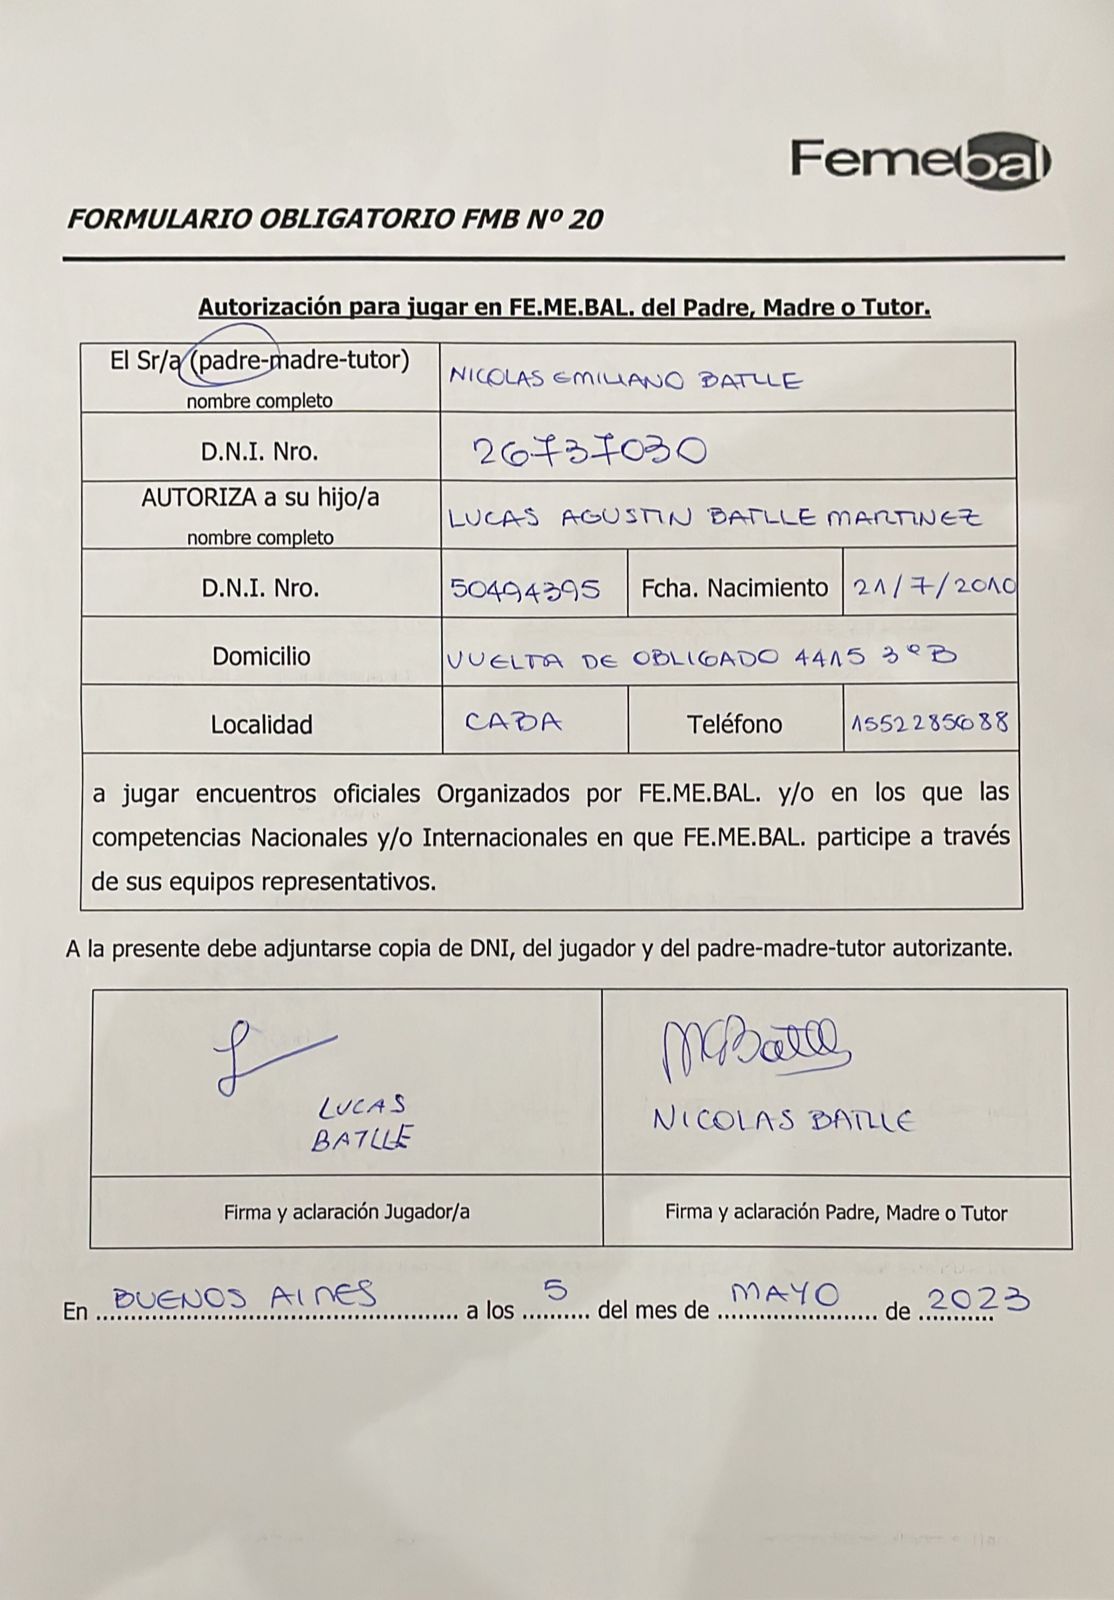 Femebal
FORMULARIO OBLIGATORIO FMB Nº 20
Autorización para jugar en FE.ME.BAL. del Padre, Madre o Tutor.
El Sr/a (padre-madre-tutor)
nombre completo
NICOLAS EMILIANO BATLLE
D.N.I. Nro.
26737030
AUTORIZA a su hijo/a
nombre completo
LUCAS AGUSTIN BATLLE MARTINEZ
D.N.I. Nro.
50494395
Fcha. Nacimiento
21/7/2010
Domicilio
VUELTA DE OBLIGADO 4415 3º B
Localidad
CABA
Teléfono
1552285688
a jugar encuentros oficiales Organizados por FE.ME.BAL. y/o en los que las
competencias Nacionales y/o Internacionales en que FE.ME.BAL. participe a través
de sus equipos representativos.
A la presente debe adjuntarse copia de DNI, del jugador y del padre-madre-tutor autorizante.
LUCAS
BATLLE
NICOLAS BATLLE
Firma y aclaración Jugador/a
Firma y aclaración Padre, Madre o Tutor
En BUENOS AIRES a los 5 del mes de MAYO de 2023